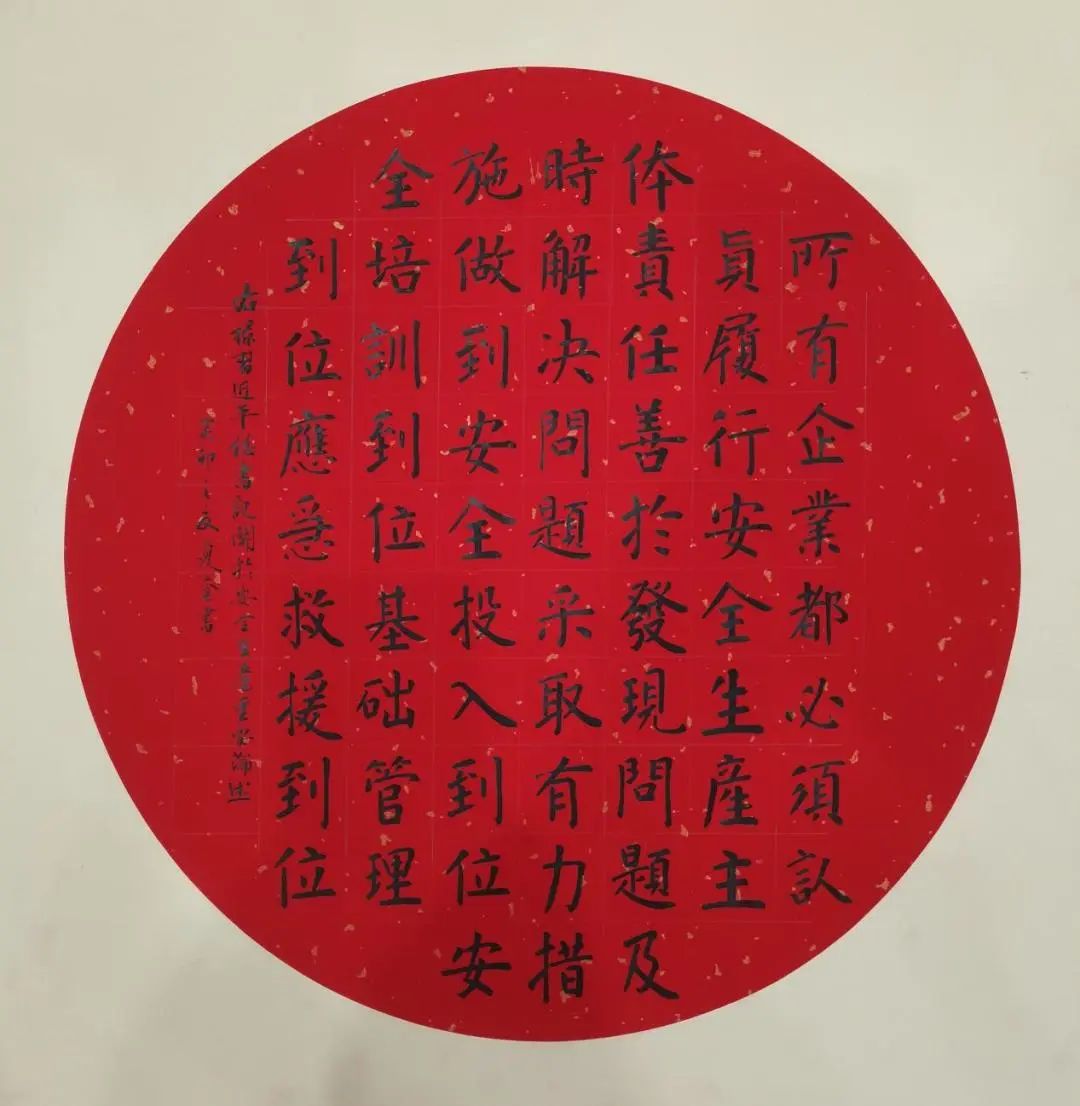 所有企業都必須認
眞履行安全生産主
体責任善於發現問題及
時解决問題采取有力措
施做到安全投入到位安
全培訓到位基础管理
到位應急救援到位
右録習近平总書記關於安全生产重要論述
癸卯之夏書